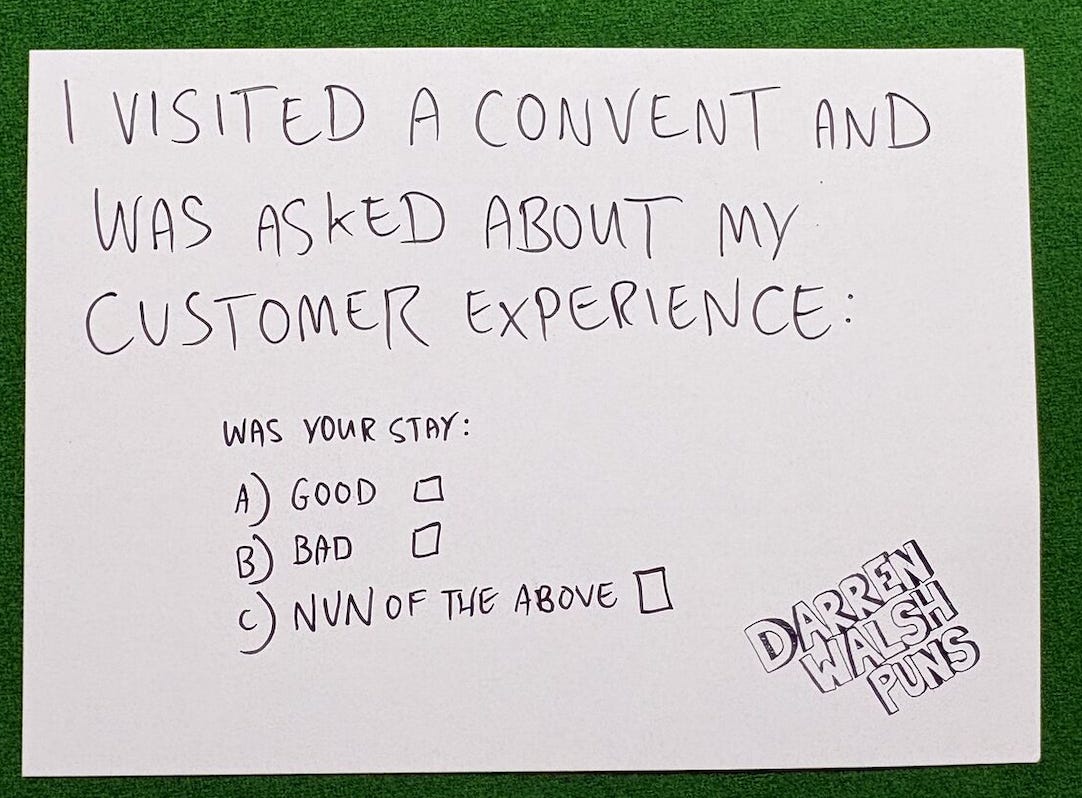 I VISITED A CONVENT AND
WAS ASKED ABOUT MY
CUSTOMER EXPERIENCE:
WAS YOUR STAY:
A) GOOD
B) BAD
C) NUN OF THE ABOVE
DARREN
WALSH
PUNS